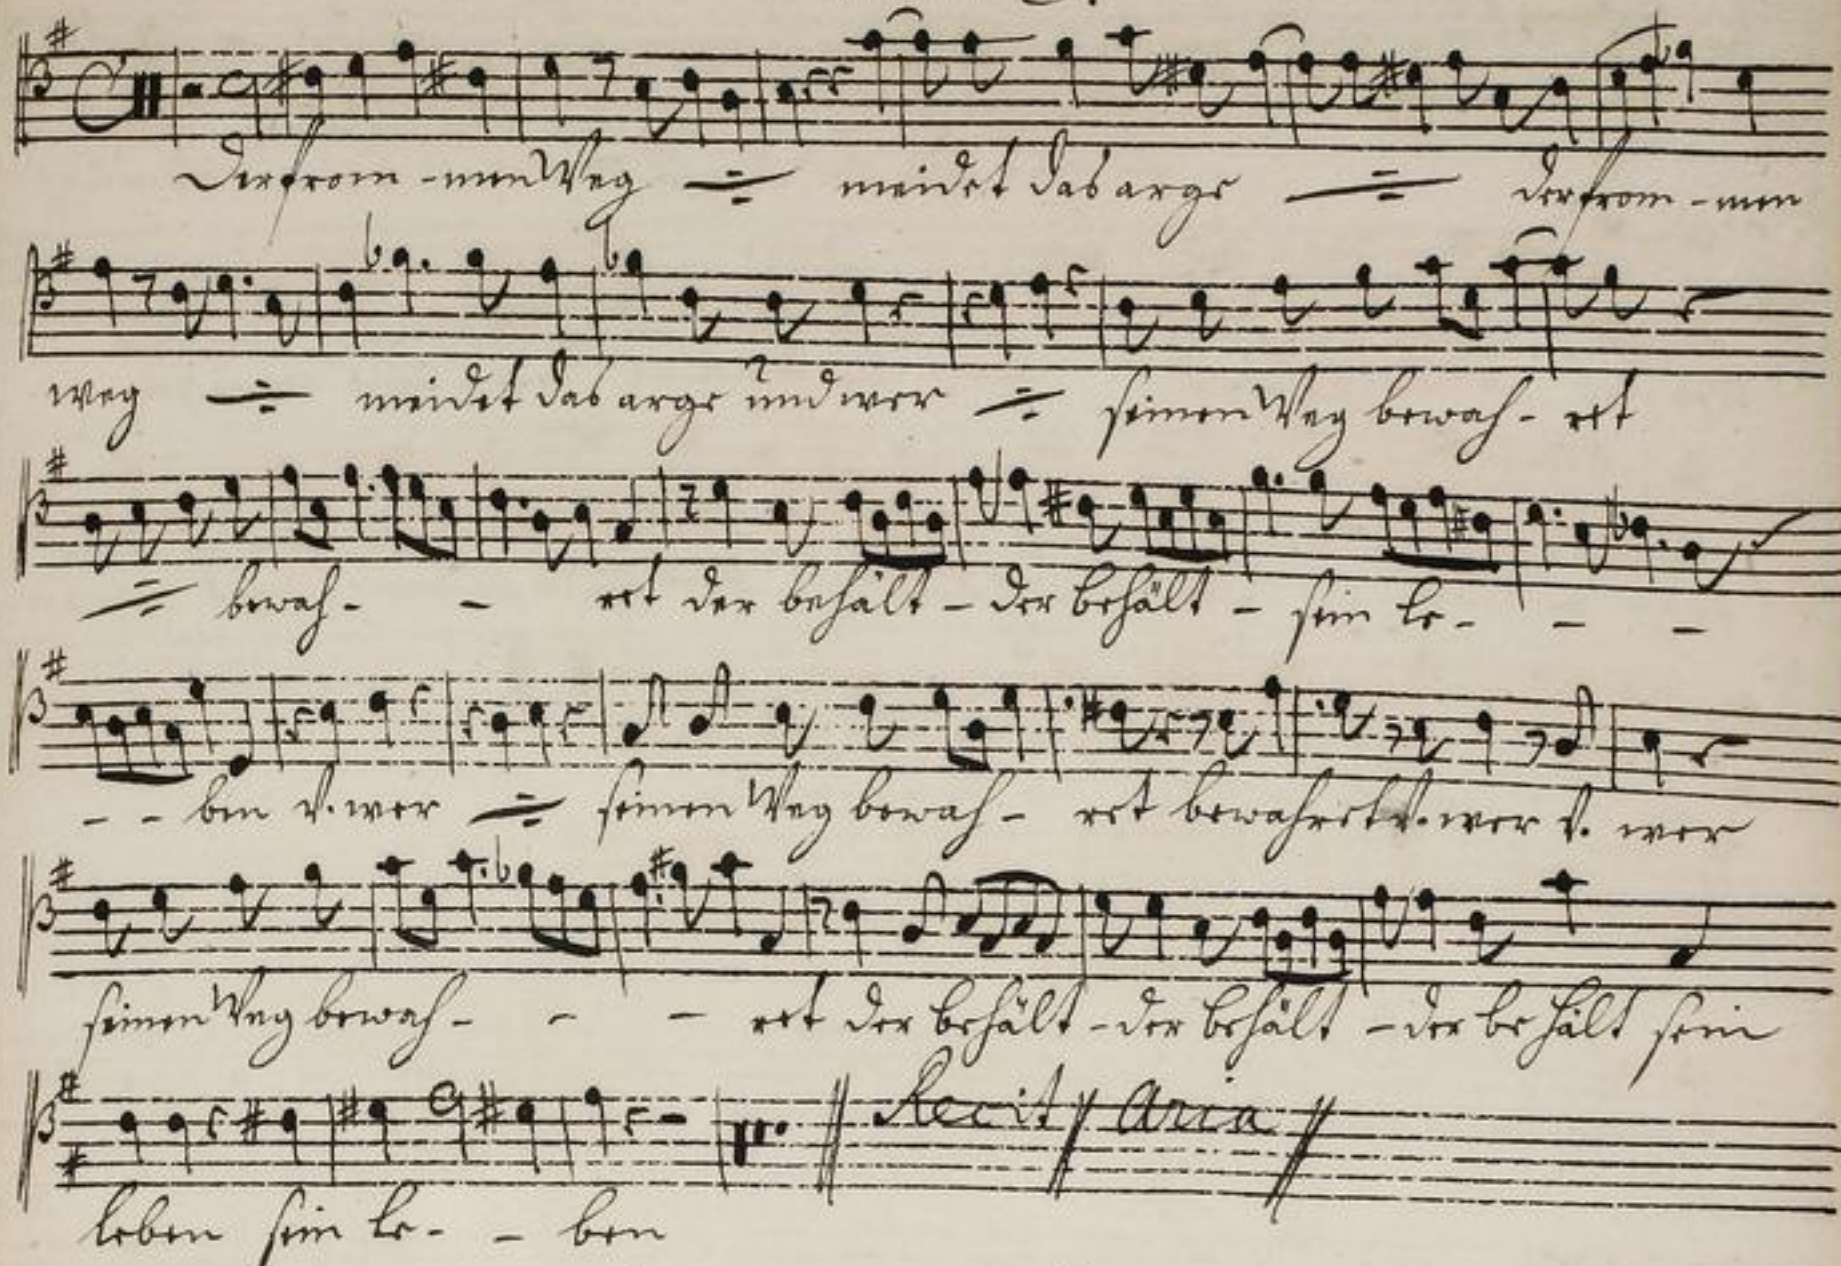 Der from - men Weg ÷ meidet das arge ÷ der from - men
weg ÷ meidet das arge und wer ÷ seinen Weg bewah - ret
÷ bewah - - ret der behält - der behält - sein le - - -
- - ben v. wer ÷ seinen Weg bewah - ret bewahret v. wer v. wer
seinen Weg bewah - - - ret der behält - der behält - der behält sein
Recit // Aria //
leben sein le - - ben